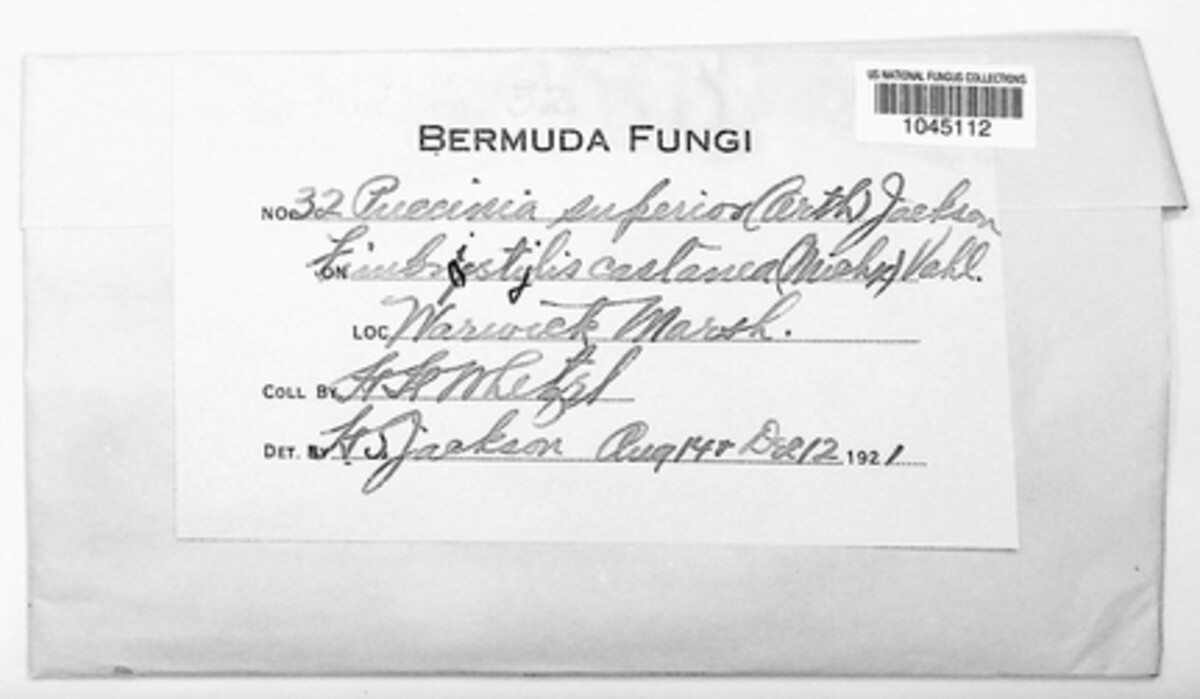 32
US NATIONAL FUNGUS COLLECTIONS
1045112
BERMUDA FUNGI
NO. 32 Puccinia superior (Arth) Jackson
ON Fimbristylis castanea (Michx) Vahl.
LOC Warwick Marsh.
COLL BY H H Whetzel
DET. BY H S. Jackson Aug 14 & Dec 12 1921